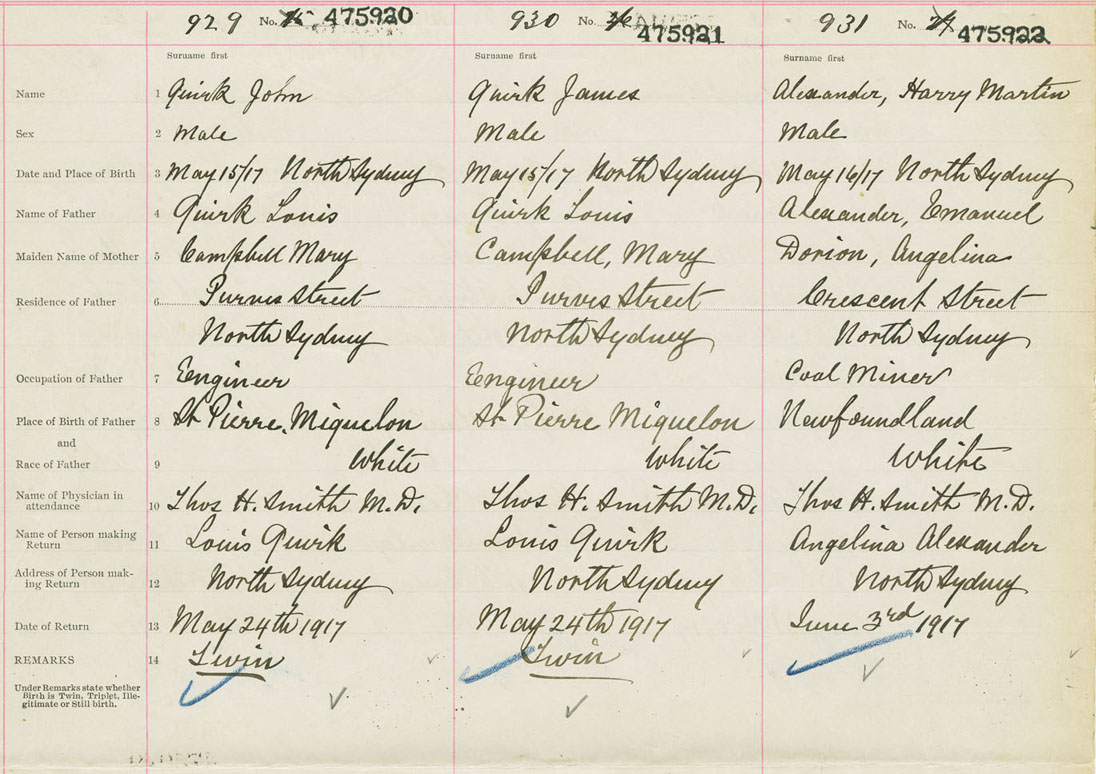 929 No. 475920 930 No. 475921 931 No. 475922
Surname first Surname first Surname first
Name 1 Quirk John Quirk James Alexander, Harry Martin
Sex 2 Male Male Male
Date and Place of Birth 3 May 15/17 North Sydney May 15/17 North Sydney May 16/17 North Sydney
Name of Father 4 Quirk Louis Quirk Louis Alexander, Emanuel
Maiden Name of Mother 5 Campbell Mary Campbell, Mary Dorion, Angelina
Residence of Father 6 Purves Street Purves Street Crescent Street
North Sydney North Sydney North Sydney
Occupation of Father 7 Engineer Engineer Coal Miner
Place of Birth of Father 8 St Pierre, Miquelon St Pierre Miquelon Newfoundland
and
Race of Father 9 White White White
Name of Physician in
attendance 10 Thos H. Smith M.D. Thos H. Smith M.D. Thos H. Smith M.D.
Name of Person making
Return 11 Louis Quirk Louis Quirk Angelina Alexander
Address of Person mak-
ing Return 12 North Sydney North Sydney North Sydney
Date of Return 13 May 24th 1917 May 24th 1917 June 3rd 1917
REMARKS 14 Twin Twin
Under Remarks state whether
Birth is Twin, Triplet, Ille-
gitimate or Still birth.